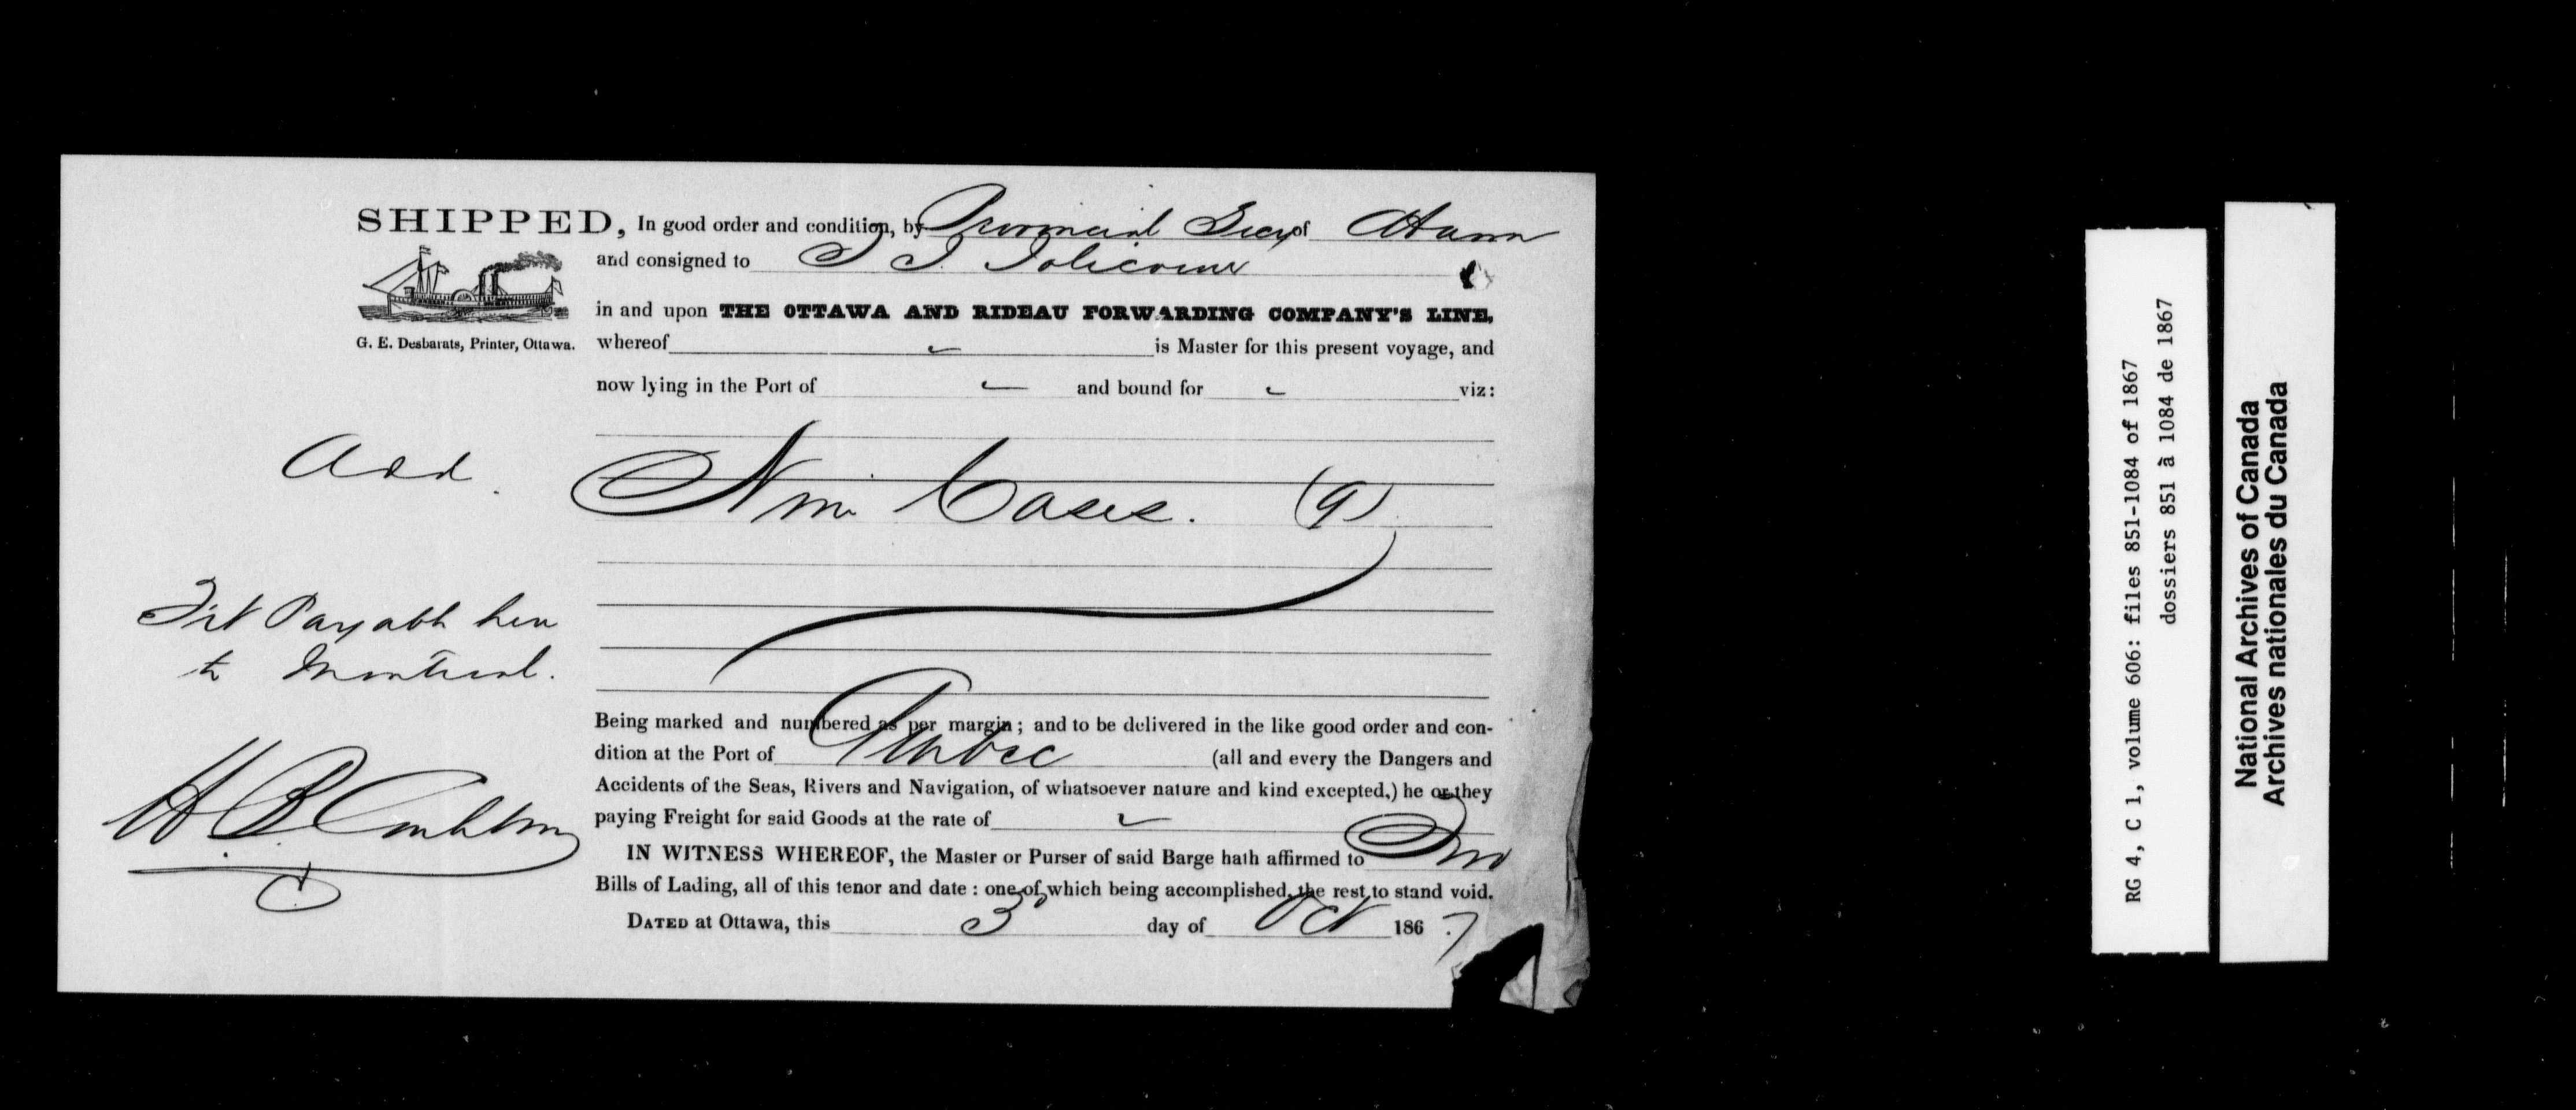 SHIPPED, In good order and condition, by Provincial Secy of Ottawa
and consigned to J. J.
in and upon THE OTTAWA AND RIDEAU FORWARDING COMPANY'S LINE,
G. E. Desbarats, Printer, Ottawa.
whereof is Master for this present voyage, and
now lying in the Port of and bound for viz:
Add.
Nine Cases. (9)
Frt Payable here
to Montreal.
Being marked and numbered as per margin; and to be delivered in the like good order and con-
dition at the Port of Quebec (all and every the Dangers and
Accidents of the Seas, Rivers and Navigation, of whatsoever nature and kind excepted,) he or they
paying Freight for said Goods at the rate of
H. B.
IN WITNESS WHEREOF, the Master or Purser of said Barge hath affirmed to Two
Bills of Lading, all of this tenor and date: one of which being accomplished, the rest to stand void.
DATED at Ottawa, this 3 day of Oct 1867
RG 4, C 1, volume 606: files 851-1084 of 1867
dossiers 851 à 1084 de 1867
National Archives of Canada
Archives nationales du Canada